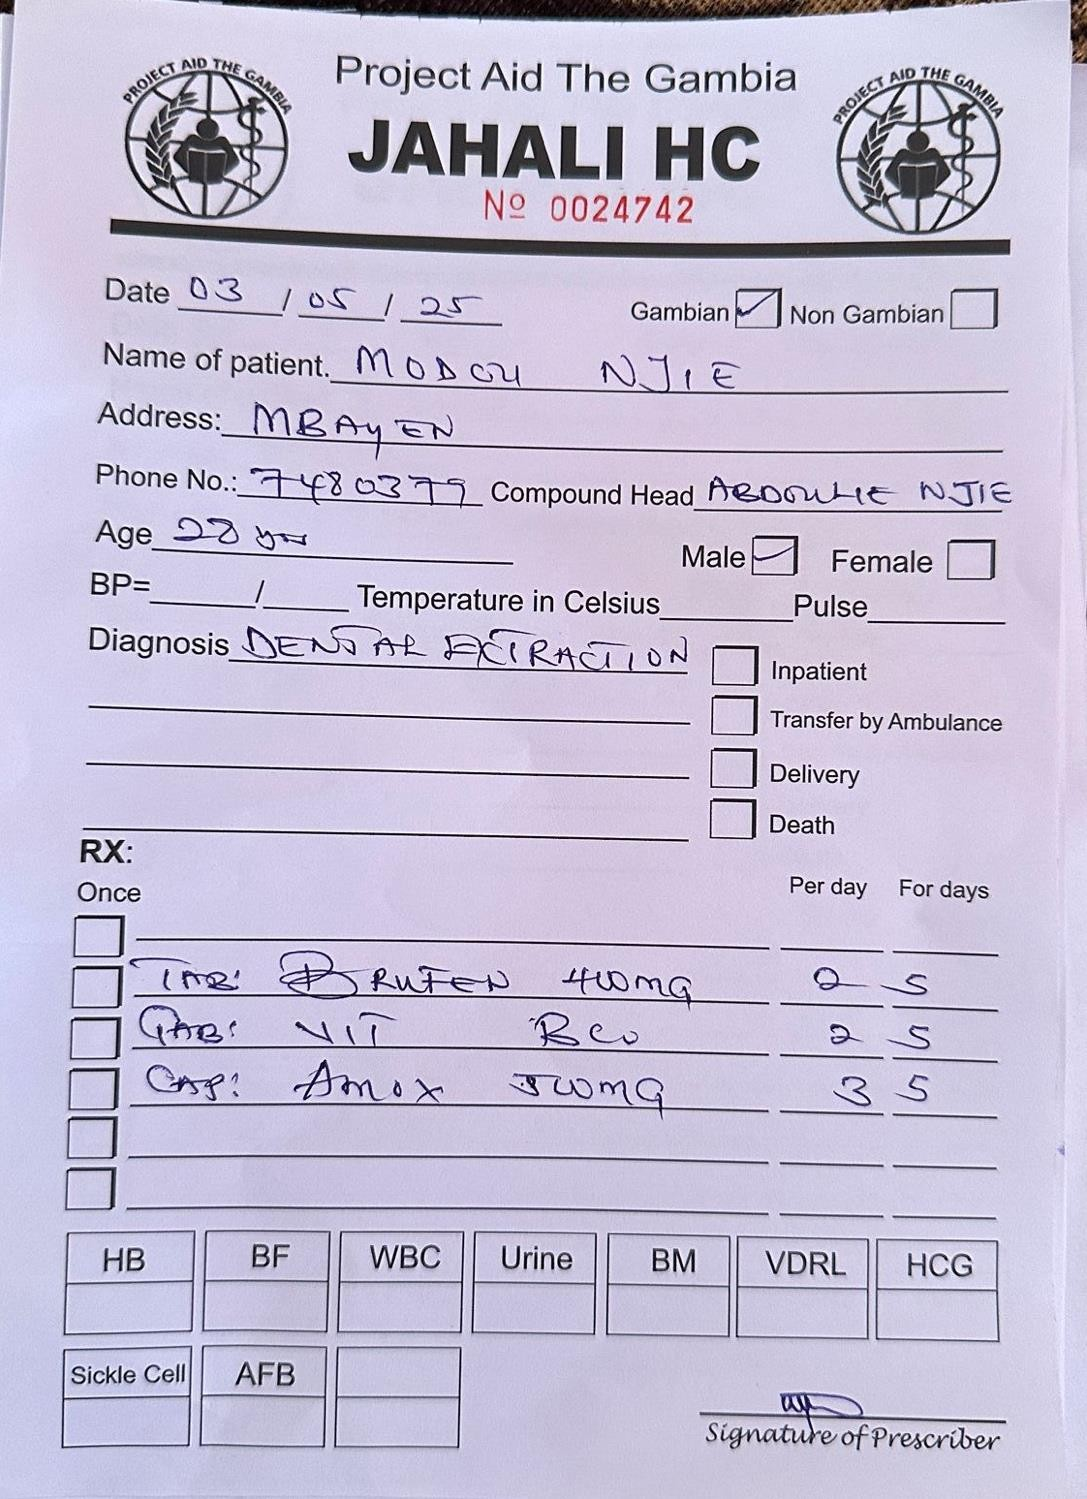 PROJECT AID THE GAMBIA
Project Aid The Gambia
PROJECT AID THE GAMBIA
JAHALI HC
Nº 0024742
Date 03 / 05 / 25 Gambian Non Gambian
Name of patient. MODOU NJIE
Address: MBAYEN
Phone No.: 7480379 Compound Head ABDOULIE NJIE
Age 28 yrs Male Female
BP= / Temperature in Celsius Pulse
Diagnosis DENTAL EXTRACTION Inpatient
Transfer by Ambulance
Delivery
Death
RX:
Once Per day For days
TAB: BRUFEN 400MG 2 5
TAB: VIT BCO 2 5
CAP: AMOX 500MG 3 5
HB BF WBC Urine BM VDRL HCG
Sickle Cell AFB
Signature of Prescriber